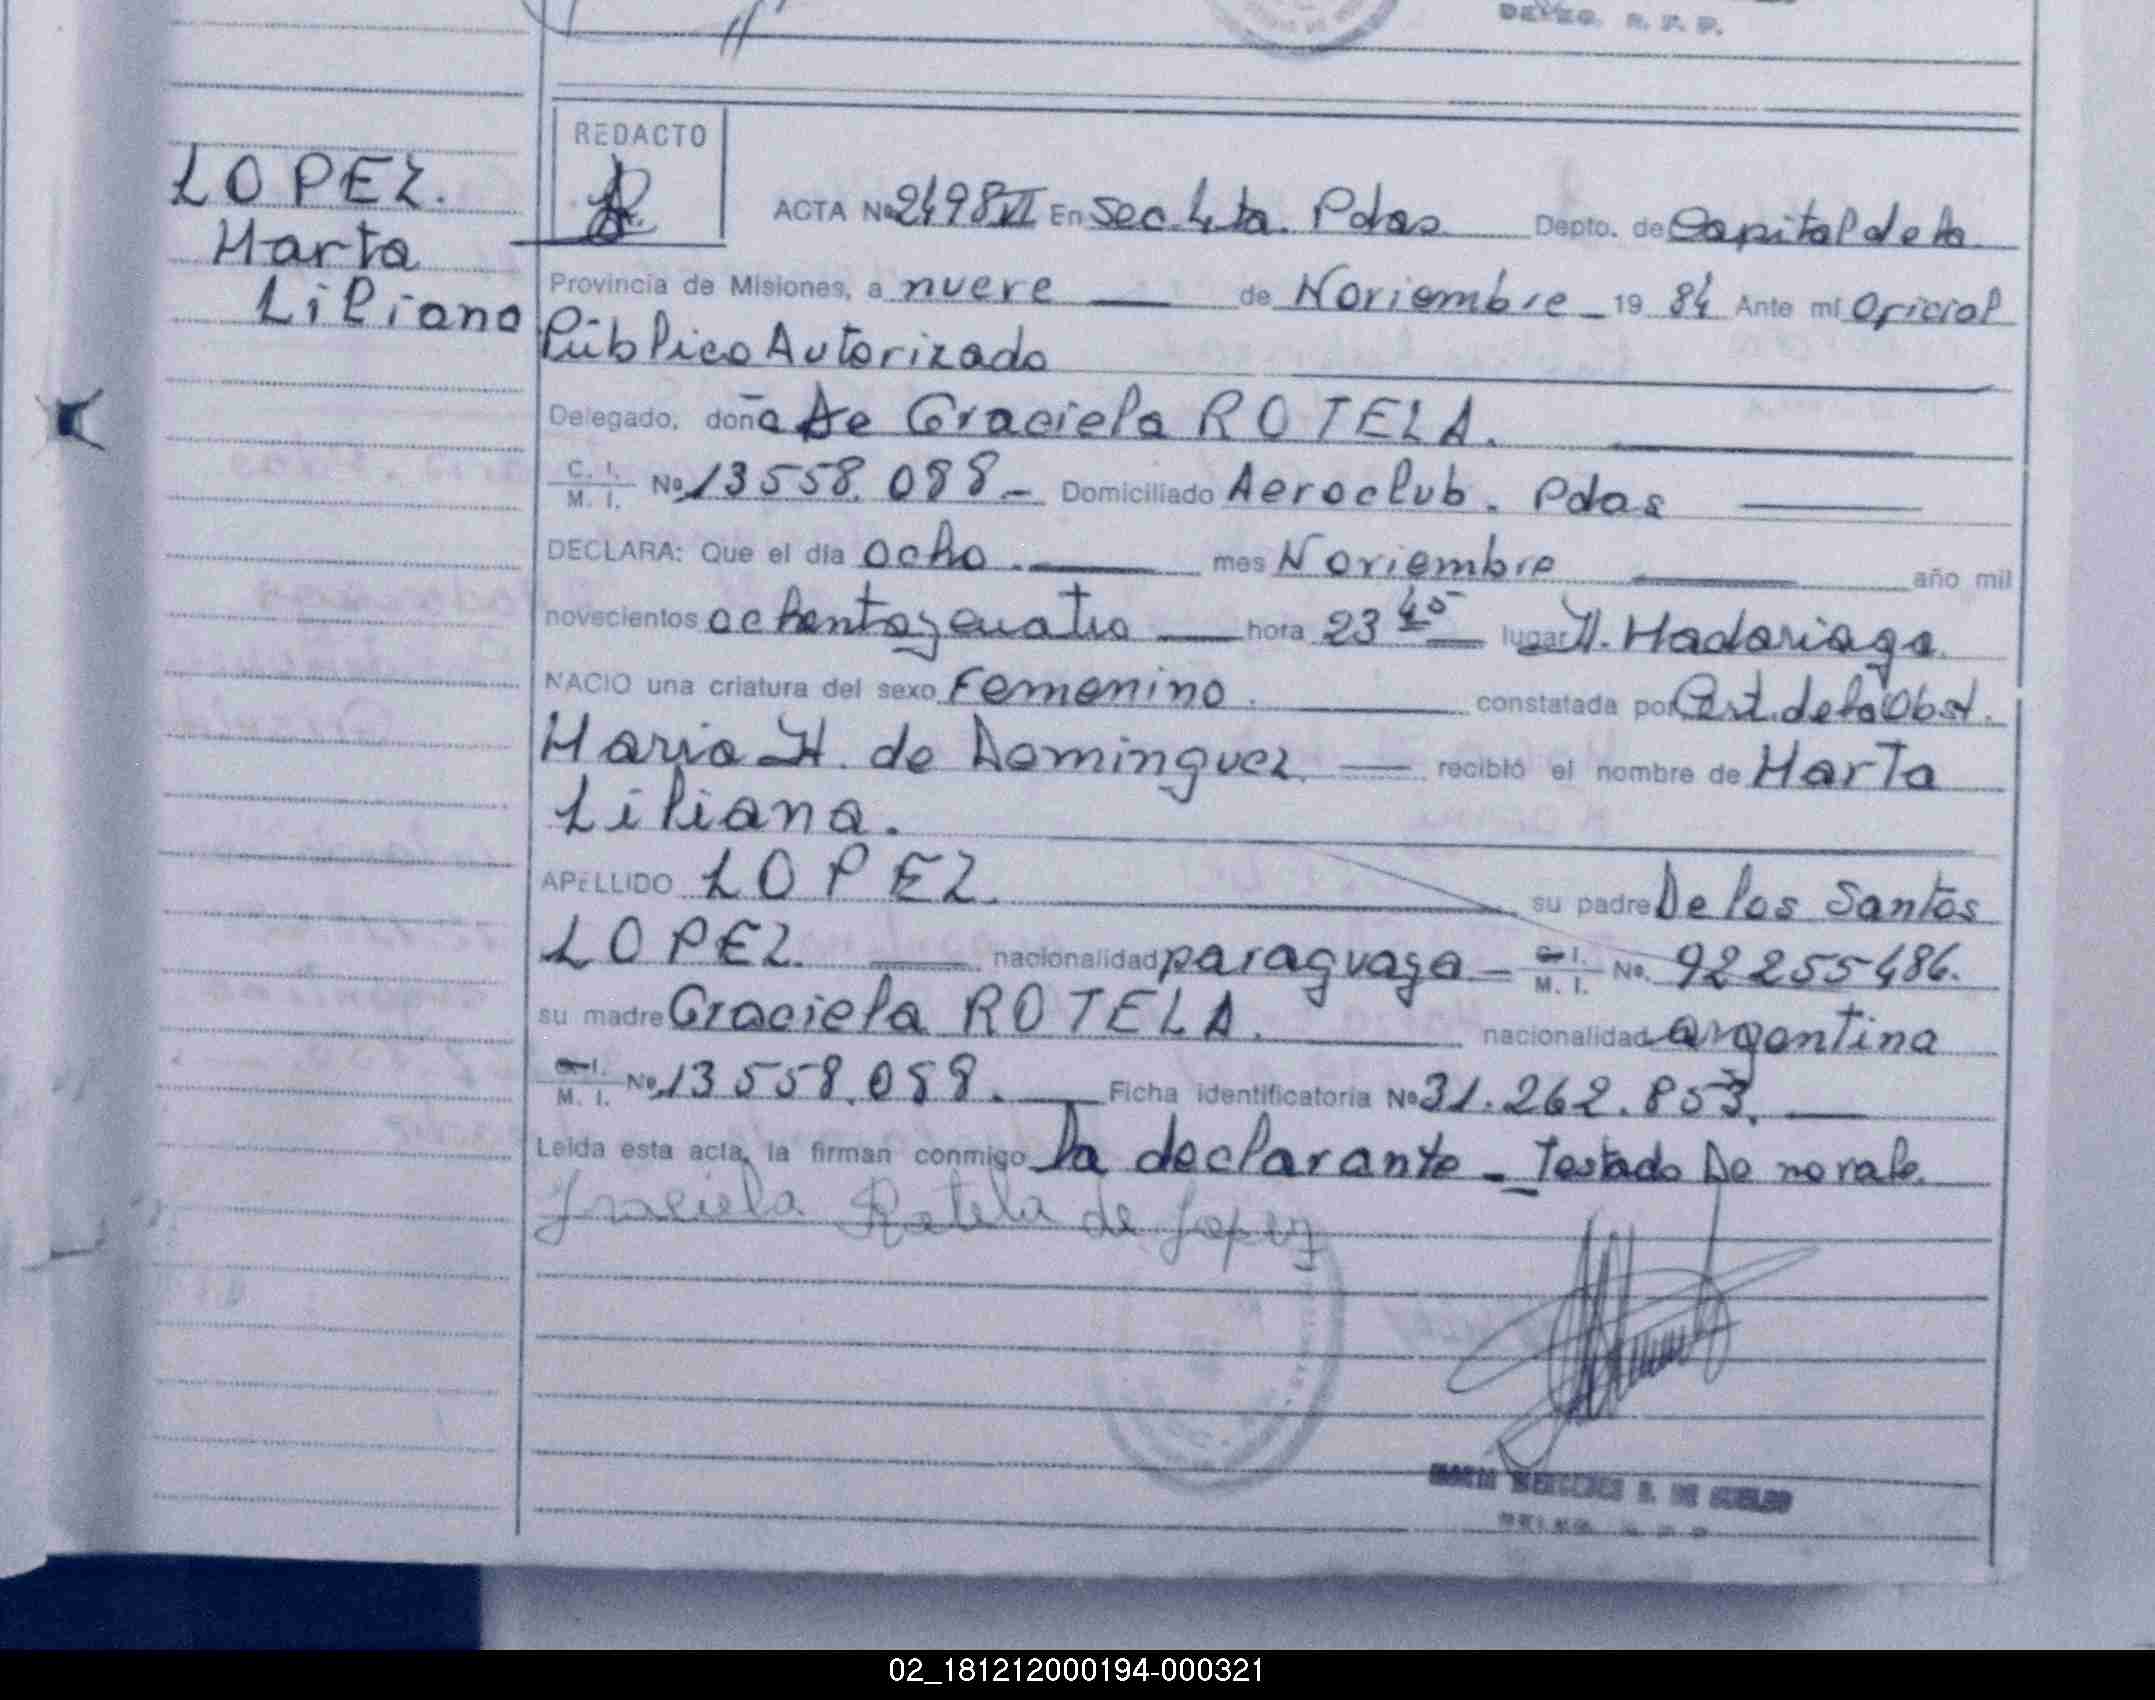 DELEG. R. P. P.
REDACTO
LOPEZ.
Marta
Liliana
ACTA Nº 2498 VI En Sec. 4ta. Pdas Depto. de Capital de la
Provincia de Misiones, a nueve de Noviembre 19 84 Ante mí Oficial
Público Autorizado
Delegado, doña De Graciela ROTELA.
C. I. M. I. Nº 13558.088.- Domiciliado Aeroclub. Pdas
DECLARA: Que el día ocho. mes Noviembre año mil
novecientos ochenta y cuatro hora 23 45 lugar H. Madariaga.
NACIO una criatura del sexo Femenino. constatada por Cert. de la Obst.
Maria H. de Dominguez. recibió el nombre de Marta
Liliana.
APELLIDO LOPEZ. su padre De los Santos
LOPEZ. nacionalidad paraguaya C. I. M. I. Nº. 92255486.
su madre Graciela ROTELA. nacionalidad argentina
C. I. M. I. Nº 13558.088. Ficha identificatoria Nº 31.262.853.
Leída esta acta, la firman conmigo la declarante - Testado De no vale.
Graciela Rotela de Lopez
MARIA MERCEDES
02_181212000194-000321